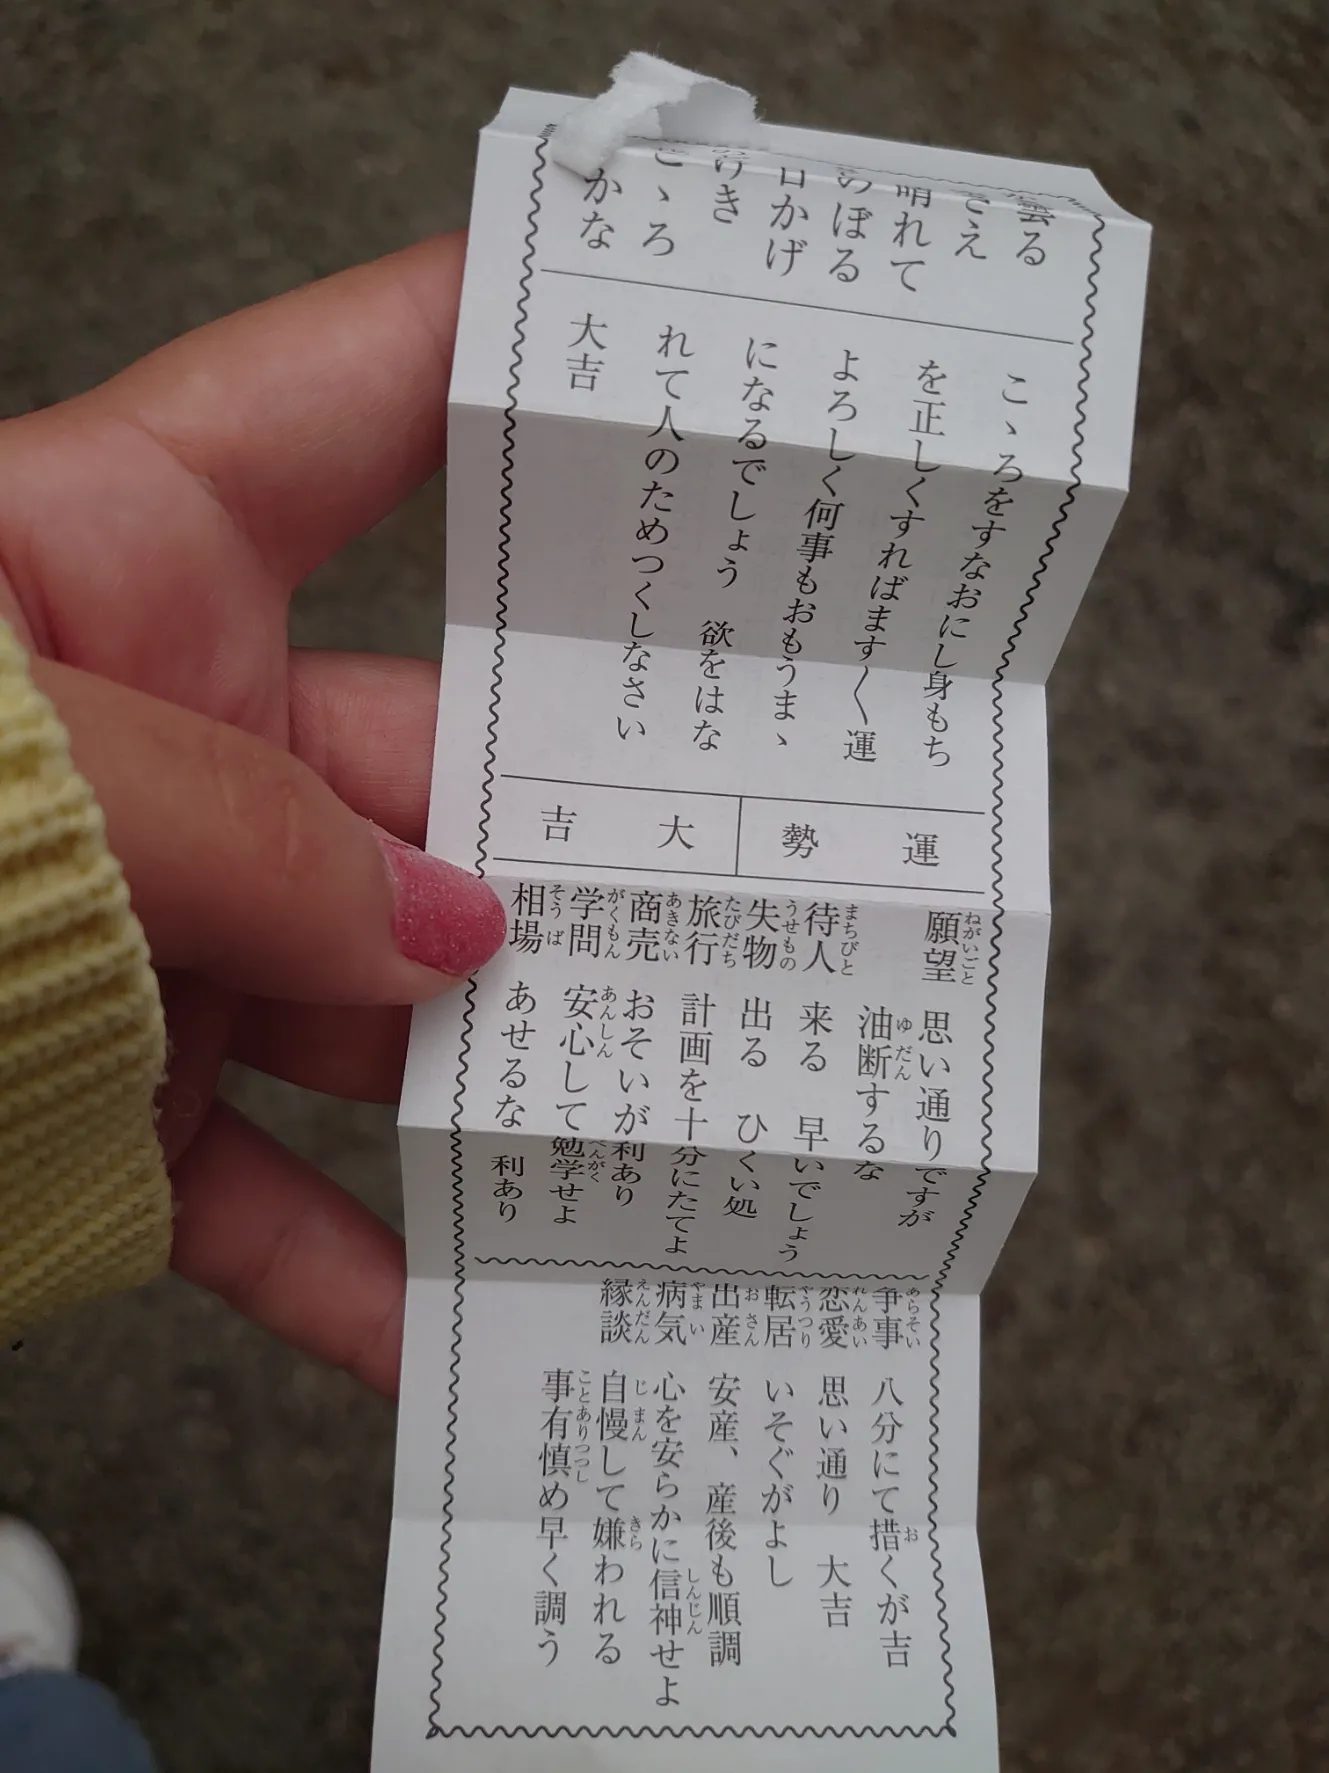 曇る
さえ
晴れて
のぼる
日かげ
のけき
こゝろ
かな
こゝろをすなおにし身もち
を正しくすればます〱運
よろしく何事もおもうまゝ
になるでしょう 欲をはな
れて人のためつくしなさい
大吉
運勢 大吉
願望 思い通りですが
ねがいごと
油断するな
ゆだん
待人 来る 早いでしょう
まちびと
失物 出る ひくい処
うせもの
旅行 計画を十分にたてよ
たびだち
商売 おそいが利あり
あきない
学問 安心して勉学せよ
がくもん あんしん べんがく
相場 あせるな 利あり
そうば
争事 八分にて措くが吉
あらそい お
恋愛 思い通り 大吉
れんあい
転居 いそぐがよし
やうつり
出産 安産、産後も順調
おさん
病気 心を安らかに信神せよ
やまい しんじん
縁談 自慢して嫌われる
えんだん じまん きら
事有慎め早く調う
ことありつつし